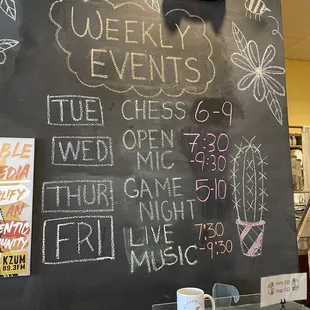 WEEKLY
EVENTS
TUE CHESS 6-9
WED OPEN MIC 7:30 -9:30
THUR GAME NIGHT 5-10
FRI LIVE MUSIC 7:30 -9:30
BLE
EDIA
PLIFY
AN
ENTIC
UNITY
KZUM
89.3FM